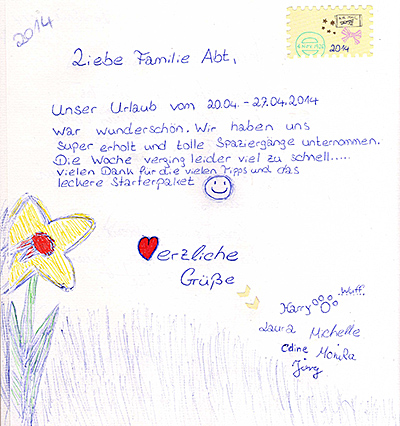 2014
2014
Liebe Familie Abt,
Unser Urlaub vom 20.04.-27.04.2014
war wunderschön. Wir haben uns
super erholt und tolle Spaziergänge unternommen.
Die Woche verging leider viel zu schnell.....
vielen Dank für die vielen Tipps und das
leckere Starterpaket
Herzliche
Grüße
Wuff
Harry
Laura Michelle
Monika
Jörg